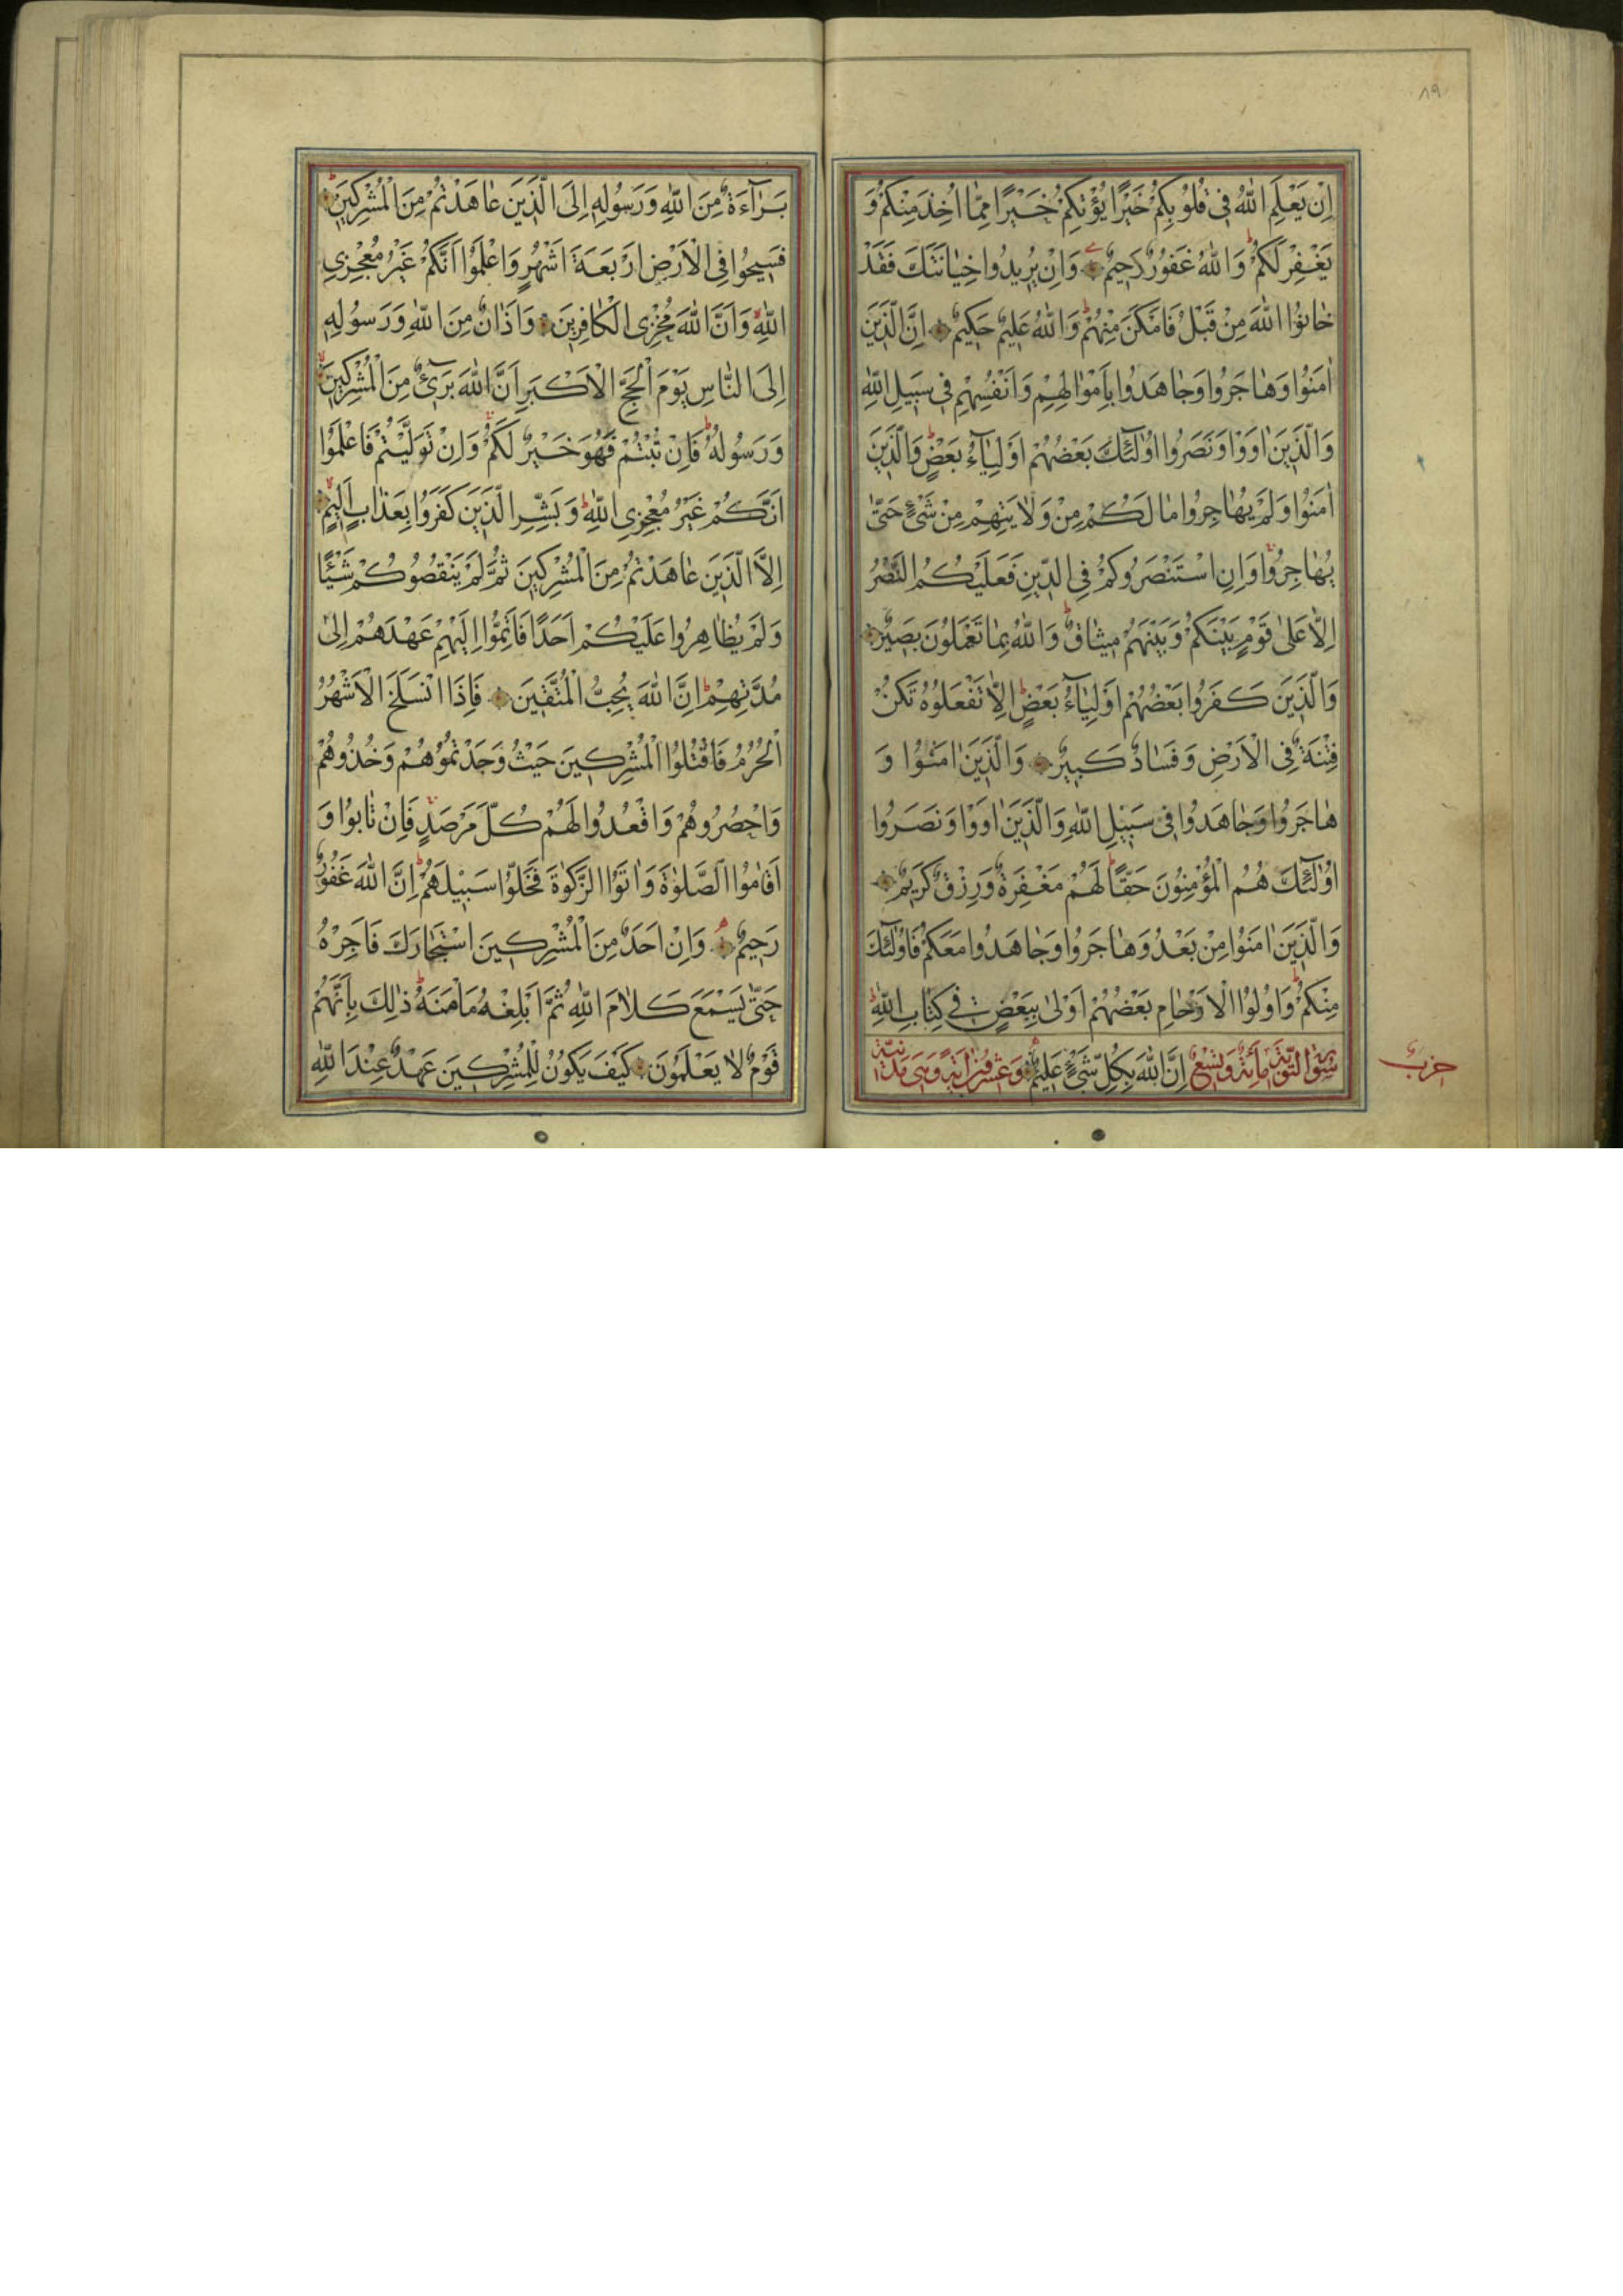 ٨٩
اِنْ يَعْلَمِ اللّٰهُ فٖى قُلُوبِكُمْ خَيْرًا يُؤْتِكُمْ خَيْرًا مِمَّا اُخِذَ مِنْكُمْ وَ
يَغْفِرْ لَكُمْ وَاللّٰهُ غَفُورٌ رَحٖيمٌ وَاِنْ يُرٖيدُوا خِيَانَتَكَ فَقَدْ
خَانُوا اللّٰهَ مِنْ قَبْلُ فَاَمْكَنَ مِنْهُمْ وَاللّٰهُ عَلٖيمٌ حَكٖيمٌ اِنَّ الَّذٖينَ
اٰمَنُوا وَهَاجَرُوا وَجَاهَدُوا بِاَمْوَالِهِمْ وَاَنْفُسِهِمْ فٖى سَبٖيلِ اللّٰهِ
وَالَّذٖينَ اٰوَوْا وَنَصَرُوا اُولٰٓئِكَ بَعْضُهُمْ اَوْلِيَآءُ بَعْضٍ وَالَّذٖينَ
اٰمَنُوا وَلَمْ يُهَاجِرُوا مَا لَكُمْ مِنْ وَلَايَتِهِمْ مِنْ شَىْءٍ حَتّٰى
يُهَاجِرُوا وَاِنِ اسْتَنْصَرُوكُمْ فِى الدّٖينِ فَعَلَيْكُمُ النَّصْرُ
اِلَّا عَلٰى قَوْمٍ بَيْنَكُمْ وَبَيْنَهُمْ مٖيثَاقٌ وَاللّٰهُ بِمَا تَعْمَلُونَ بَصٖيرٌ
وَالَّذٖينَ كَفَرُوا بَعْضُهُمْ اَوْلِيَآءُ بَعْضٍ اِلَّا تَفْعَلُوهُ تَكُنْ
فِتْنَةٌ فِى الْاَرْضِ وَفَسَادٌ كَبٖيرٌ وَالَّذٖينَ اٰمَنُوا وَ
هَاجَرُوا وَجَاهَدُوا فٖى سَبٖيلِ اللّٰهِ وَالَّذٖينَ اٰوَوْا وَنَصَرُوا
اُولٰٓئِكَ هُمُ الْمُؤْمِنُونَ حَقًّا لَهُمْ مَغْفِرَةٌ وَرِزْقٌ كَرٖيمٌ
وَالَّذٖينَ اٰمَنُوا مِنْ بَعْدُ وَهَاجَرُوا وَجَاهَدُوا مَعَكُمْ فَاُولٰٓئِكَ
مِنْكُمْ وَاُولُوا الْاَرْحَامِ بَعْضُهُمْ اَوْلٰى بِبَعْضٍ فٖى كِتَابِ اللّٰهِ
سورة التوبة مائة وتسع اِنَّ اللّٰهَ بِكُلِّ شَىْءٍ عَلٖيمٌ وعشرون اية وهى مدنية
حزب
بَرَآءَةٌ مِنَ اللّٰهِ وَرَسُولِهٖ اِلَى الَّذٖينَ عَاهَدْتُمْ مِنَ الْمُشْرِكٖينَ
فَسٖيحُوا فِى الْاَرْضِ اَرْبَعَةَ اَشْهُرٍ وَاعْلَمُوا اَنَّكُمْ غَيْرُ مُعْجِزِى
اللّٰهِ وَاَنَّ اللّٰهَ مُخْزِى الْكَافِرٖينَ وَاَذَانٌ مِنَ اللّٰهِ وَرَسُولِهٖ
اِلَى النَّاسِ يَوْمَ الْحَجِّ الْاَكْبَرِ اَنَّ اللّٰهَ بَرٖٓىءٌ مِنَ الْمُشْرِكٖينَ
وَرَسُولُهُ فَاِنْ تُبْتُمْ فَهُوَ خَيْرٌ لَكُمْ وَاِنْ تَوَلَّيْتُمْ فَاعْلَمُوا
اَنَّكُمْ غَيْرُ مُعْجِزِى اللّٰهِ وَبَشِّرِ الَّذٖينَ كَفَرُوا بِعَذَابٍ اَلٖيمٍ
اِلَّا الَّذٖينَ عَاهَدْتُمْ مِنَ الْمُشْرِكٖينَ ثُمَّ لَمْ يَنْقُصُوكُمْ شَيْئًا
وَلَمْ يُظَاهِرُوا عَلَيْكُمْ اَحَدًا فَاَتِمُّوا اِلَيْهِمْ عَهْدَهُمْ اِلٰى
مُدَّتِهِمْ اِنَّ اللّٰهَ يُحِبُّ الْمُتَّقٖينَ فَاِذَا انْسَلَخَ الْاَشْهُرُ
الْحُرُمُ فَاقْتُلُوا الْمُشْرِكٖينَ حَيْثُ وَجَدْتُمُوهُمْ وَخُذُوهُمْ
وَاحْصُرُوهُمْ وَاقْعُدُوا لَهُمْ كُلَّ مَرْصَدٍ فَاِنْ تَابُوا وَ
اَقَامُوا الصَّلٰوةَ وَاٰتَوُا الزَّكٰوةَ فَخَلُّوا سَبٖيلَهُمْ اِنَّ اللّٰهَ غَفُورٌ
رَحٖيمٌ وَاِنْ اَحَدٌ مِنَ الْمُشْرِكٖينَ اسْتَجَارَكَ فَاَجِرْهُ
حَتّٰى يَسْمَعَ كَلَامَ اللّٰهِ ثُمَّ اَبْلِغْهُ مَاْمَنَهُ ذٰلِكَ بِاَنَّهُمْ
قَوْمٌ لَا يَعْلَمُونَ كَيْفَ يَكُونُ لِلْمُشْرِكٖينَ عَهْدٌ عِنْدَ اللّٰهِ